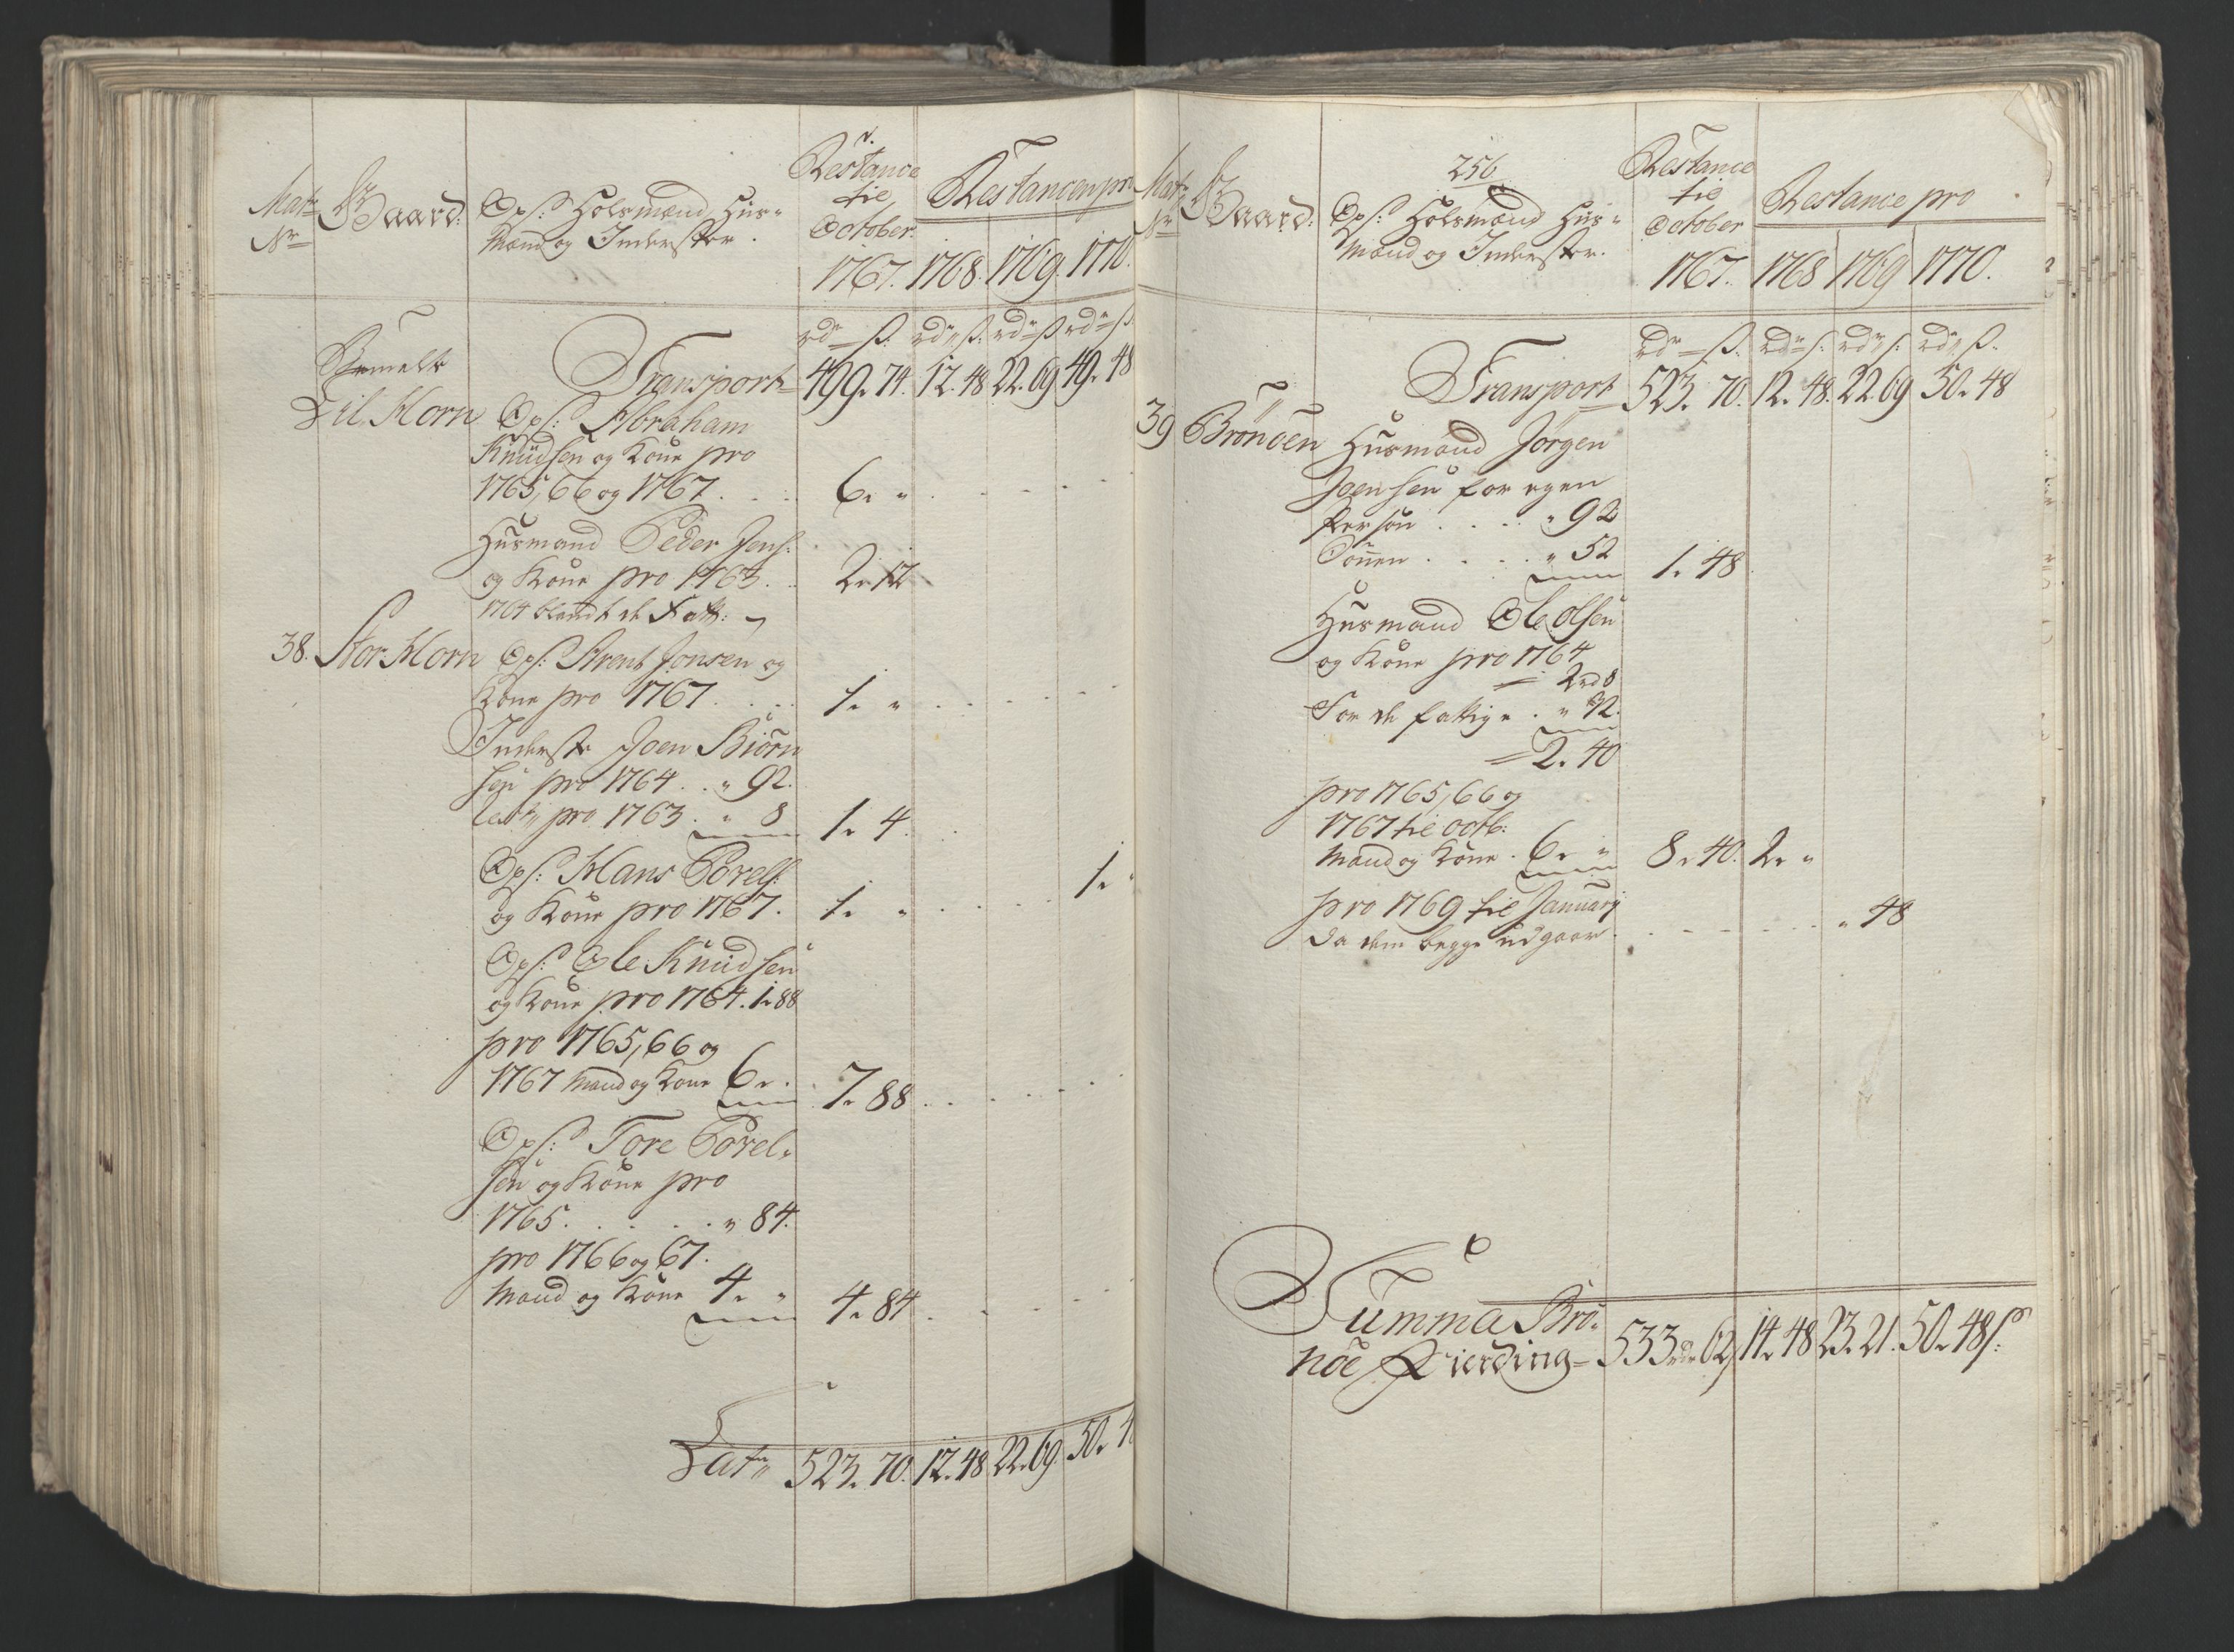 Matr: Nr
Gaard.
Ops: Holsmænd Huus-
Mænd og Inderster.
Restance
til
October.
1767.
Restancen pro
1768. 1769. 1770.
rdr ß. rdr ß. rdr ß rdr ß.
Transport 499. 74. 12. 48 22. 69 49. 48
Bemelte
Lil. Horn Ops: Abraham
Knudsen og Kone pro
1765, 66 og 1767. . . 6. „ . . . .
Huusmand Peder Jens:
og Kone pro 1763. . 2. 12
1764 blandt de Fatt:
38. Stor Horn Ops: Arent Jonsen og
Kone pro 1767. . . . 1. „ . . . .
Inderste Joen Biörn
sen pro 1764 . . „ 92.
pro 1763. „ 8 1. 4.
Ops: Hans Povels:
og Kone pro 1767. 1. „ . . . . 1.
Ops: Ole Knudsen
og Kone pro 1764. 1. 88
pro 1765, 66 og
1767 Mand og Kone 6. . 7. 88 . . . .
Ops: Tore Povel-
sen og Kone pro
1765. . . . . „ 84.
pro 1766 og 67.
Mand og Kone 4. „ 4. 84 . . . .
Lat„ 523. 70. 12. 48 22. 69. 50. 4
256
Matr: Nr
Gaard.
Ops: Holsmænd Huus-
Mænd og Inderster.
Restance
til
October
1767.
Restance pro
1768 1769 1770.
rdr ß. rdr ß. rdr ß. rdr ß.
Transport 523. 70. 12. 48. 22. 69 50. 48
39 Brönöen Huusmand Jörgen
Joensen for egen
Person . . . . „ 92
Sönnen . . . . „ 52 1. 48
Huusmand Ole Olsen
og Kone pro 1764
2 rd 8
For de fattige . „ 32.
2. 40
pro 1765, 66 og
1767 til Octb:
Mand og Kone . 6. „ 8. 40. 2. „
pro 1769 til Januarij
da dem begge udgaar . . . . . . „ 48
Summa Brö-
nöe Fierding 533 rdr 62 14. 48 23. 21. 50. 48 ß: